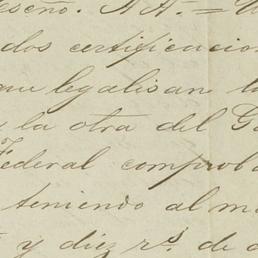 diseño.
dos certificacion
que legalisan la
y la otra del Go
Federal comproba
teniendo al ma
y diez rs. de a